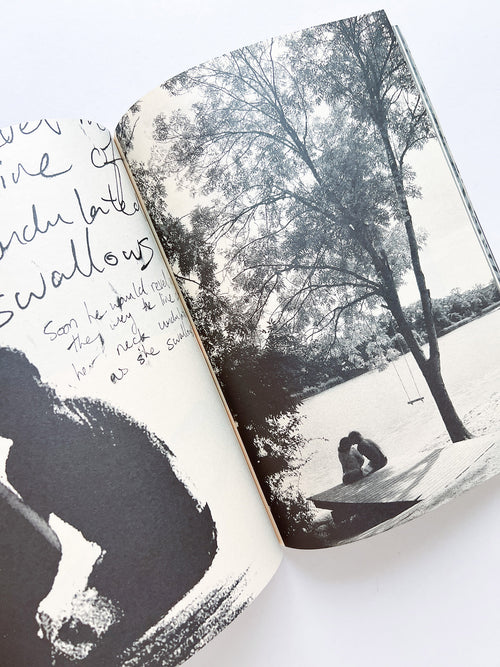 ine of
undulated
swallows
Soon he would real
the way the line
her neck undul
as she swallo